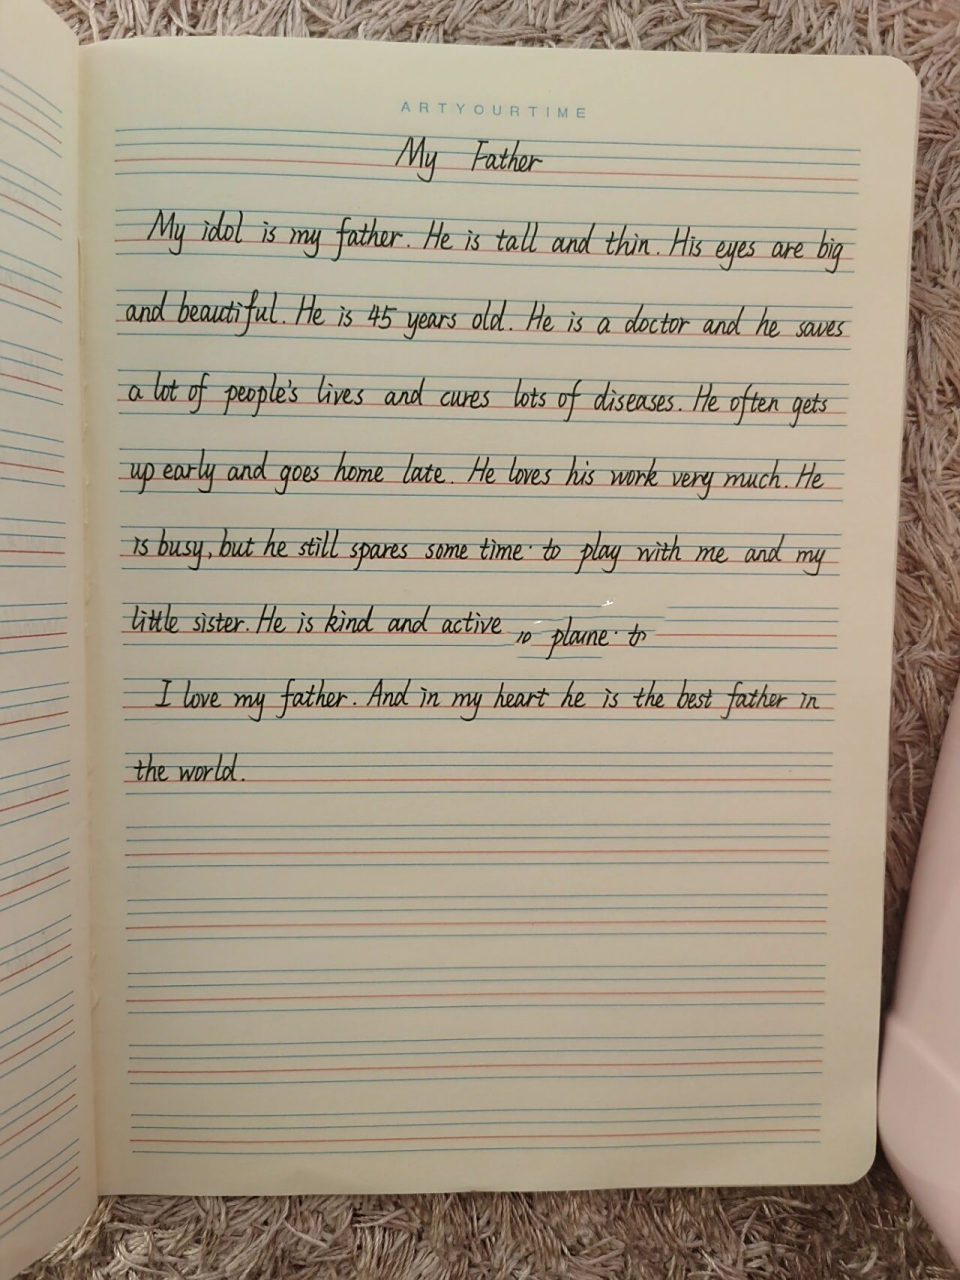 ARTYOURTIME
My Father
My idol is my father. He is tall and thin. His eyes are big
and beautiful. He is 45 years old. He is a doctor and he saves
a lot of people's lives and cures lots of diseases. He often gets
up early and goes home late. He loves his work very much. He
is busy, but he still spares some time to play with me and my
little sister. He is kind and active
I love my father. And in my heart he is the best father in
the world.